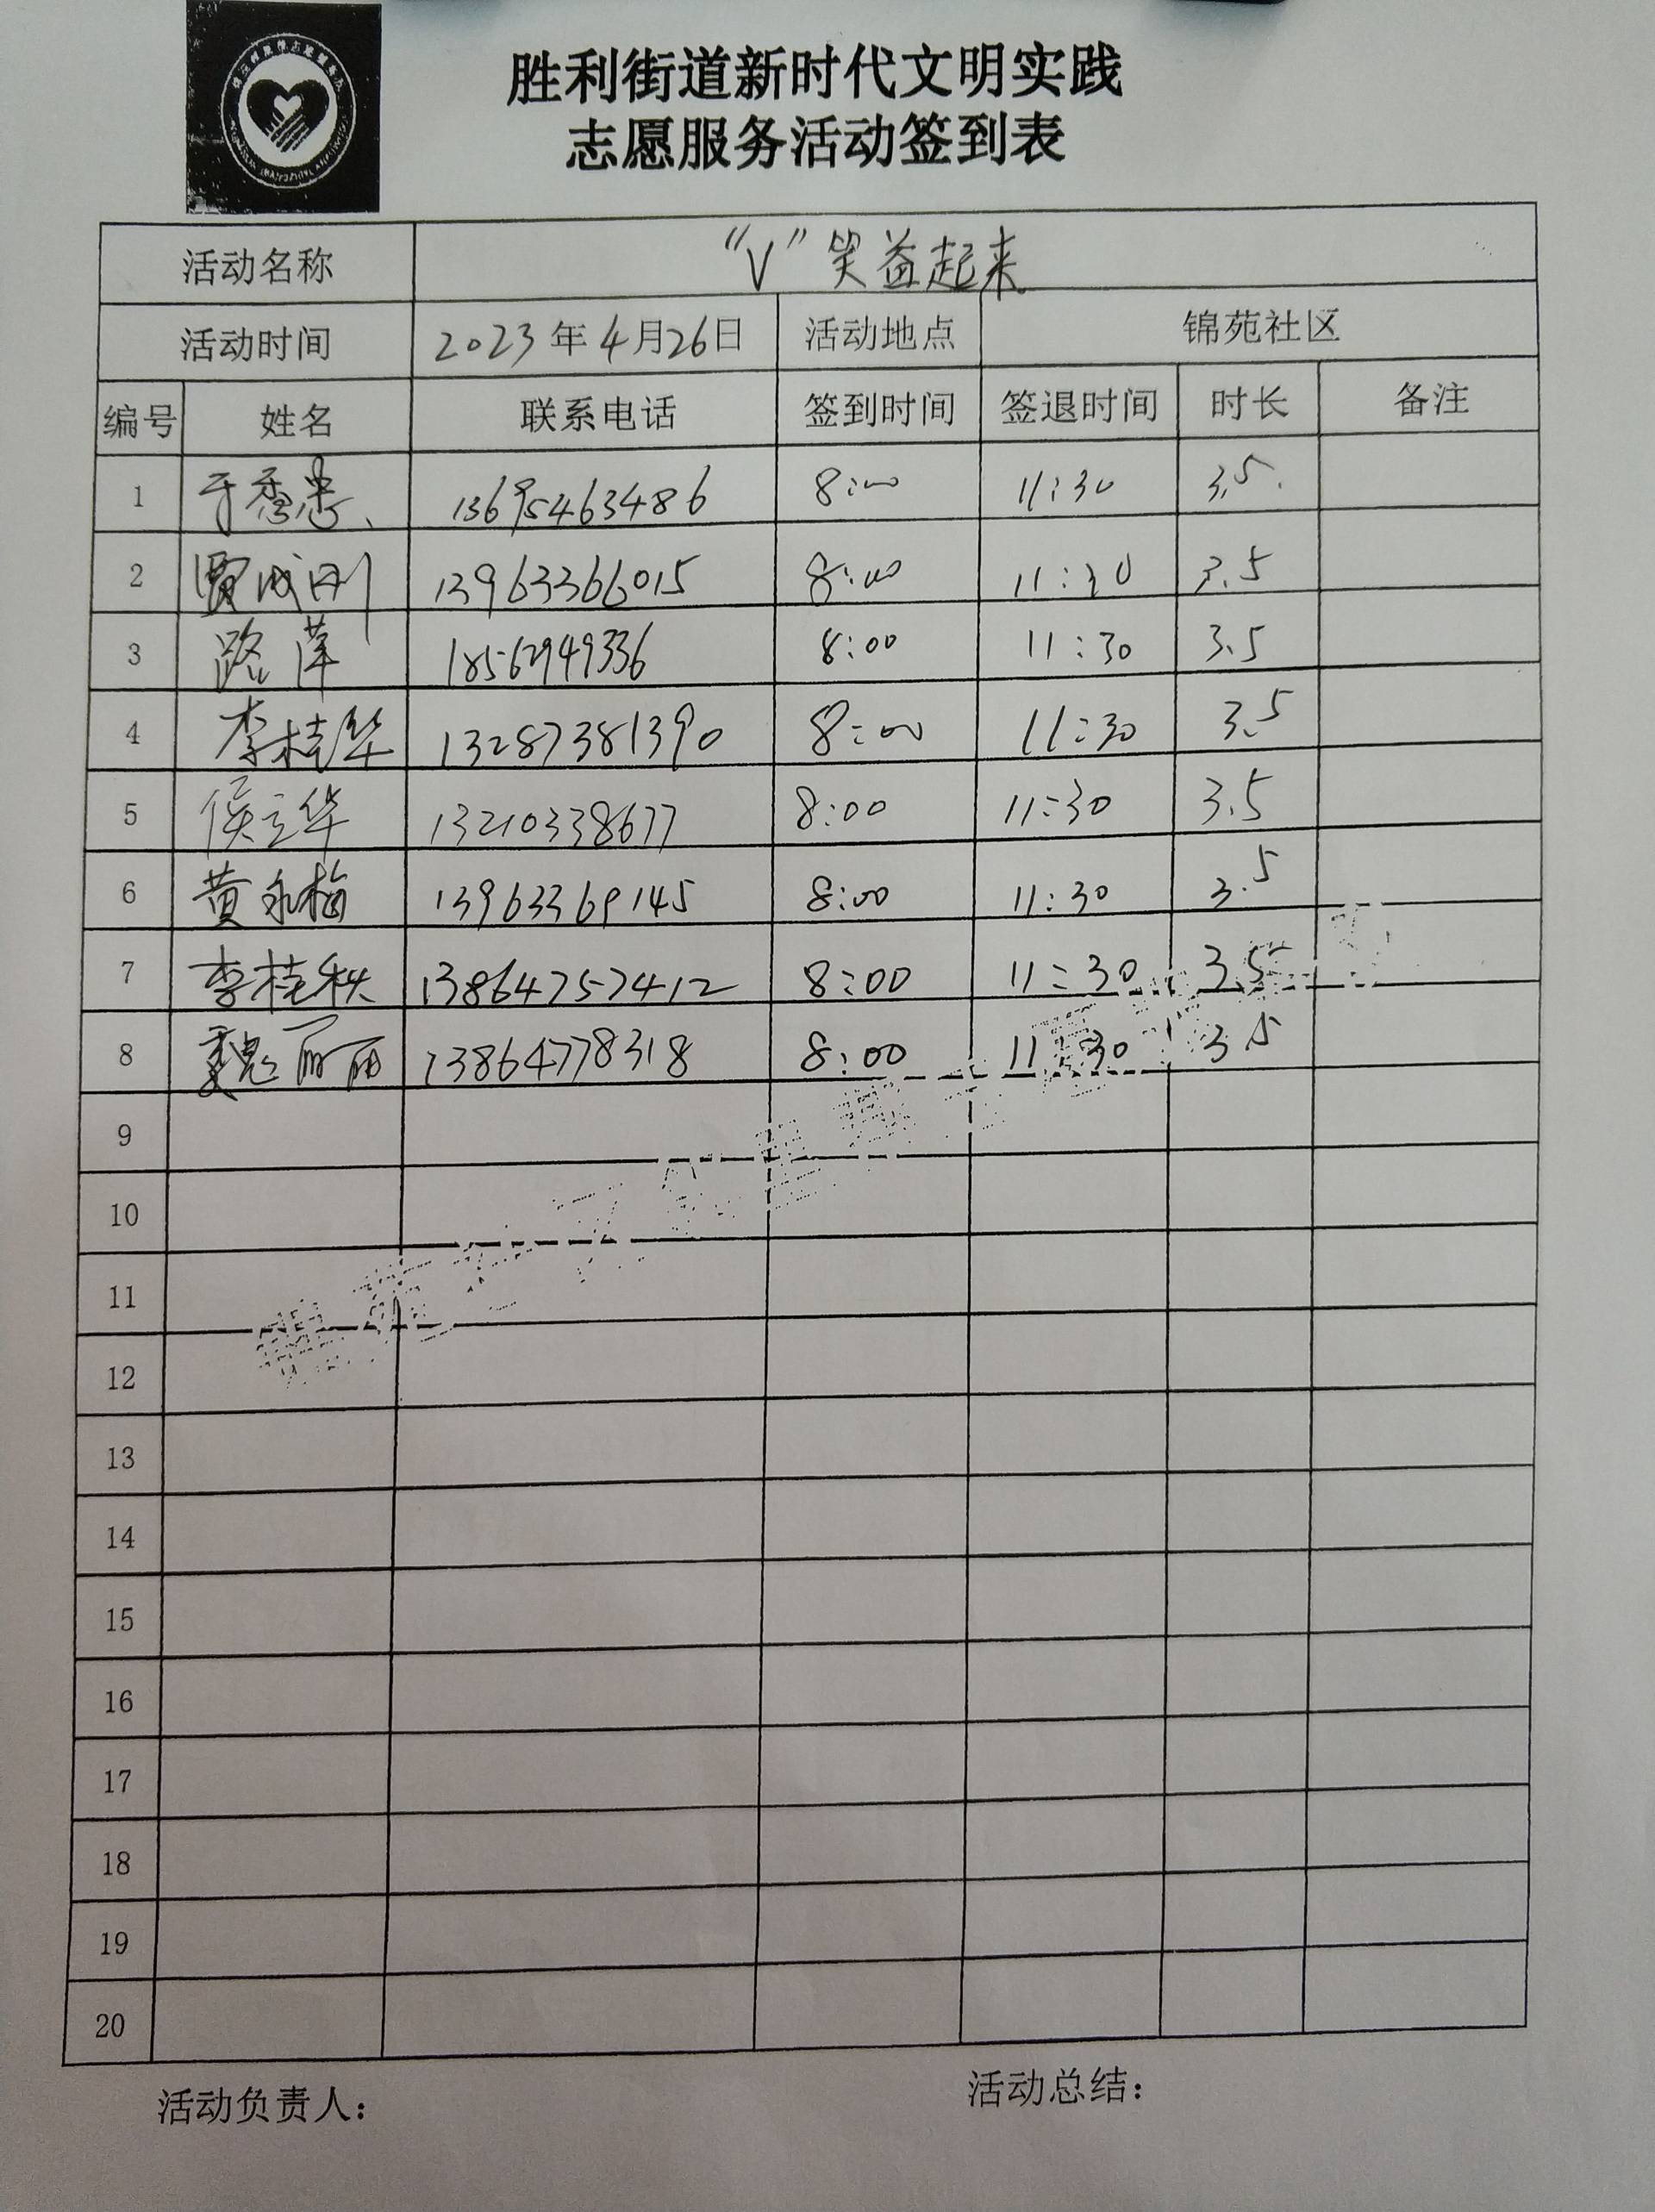 胜利街道新时代文明实践
志愿服务活动签到表
活动名称 “V”笑益起来
活动时间 2023年4月26日 活动地点 锦苑社区
编号 姓名 联系电话 签到时间 签退时间 时长 备注
1 于香惠 13695463486 8:00 11:30 3.5
2 贾成刚 13963366015 8:00 11:30 3.5
3 路萍 18562949336 8:00 11:30 3.5
4 李桂华 13287381390 8:00 11:30 3.5
5 侯立华 13210338677 8:00 11:30 3.5
6 黄永梅 13963369145 8:00 11:30 3.5
7 李桂秋 13864757412 8:00 11:30 3.5
8 魏丽丽 13864778318 8:00 11:30 3.5
9
10
11
12
13
14
15
16
17
18
19
20
活动负责人： 活动总结：